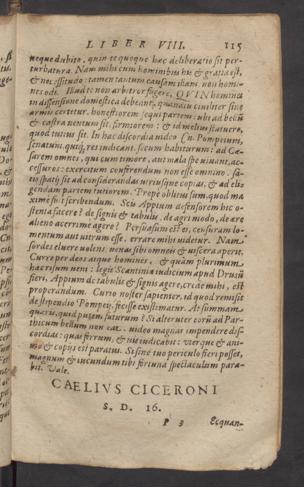 LIBER VIII. 115
neque dubito, quin te quoque hac deliberatio sit per-
turbatura. Nam mihi cum hominibus his & gratia est,
& necessitudo: tamen causam illam, non homi-
nes odi. Illud te non arbitror fugere, QVIN homines
in dissensione domestica debeant, quandiu civiliter sine
armis certetur, honestiorem sequi partem: ubi ad bellum
& castra ventum sit, firmiorem: & id melius statuere,
quod tutius sit. In hac discordia video Cn. Pompeium,
senatum, quiq́; res iudicant, secum habiturum: ad Cæ-
sarem omnes, qui cum timore, aut mala spe vivant, ac-
cessuros: exercitum conferendum non esse omnino. sa-
tis spatij sit ad considerandas utriusque copias, & ad eli-
gendam partem tutiorem. Prope oblitus sum, quod ma-
xime fuit scribendum. Scis Appium censorem hic o-
stenta facere? de signis & tabulis, de agri modo, de ære
alieno acerrime agere? Persuasum est ei, censuram lo-
mentum aut nitrum esse. errare mihi videtur. Nam
sordes eluere volens, venas sibi omnes & viscera aperit.
Curre per deos atque homines, & quàm primum
hæc risum veni: legis Scantiniæ iudicium apud Drusũ
fieri, Appium de tabulis & signis agere, crede mihi, est
properandum. Curio noster sapienter, id quod remisit
de stipendio Pompeij, fecisse existimatur. Ad summam
quæris, quid putem futurum? Si alter uter eorũ ad Par-
thicum bellum non eat. video magnas impendere dis-
cordias: quas ferrum & vis iudicabit: uterque & ani-
mo & copijs est paratus. Si sine tuo periculo fieri posset,
magnum & iucundum tibi fortuna spectaculum para-
bit. Vale.
CAELIVS CICERONI
S. D. 16.
P 3 Ecquan-